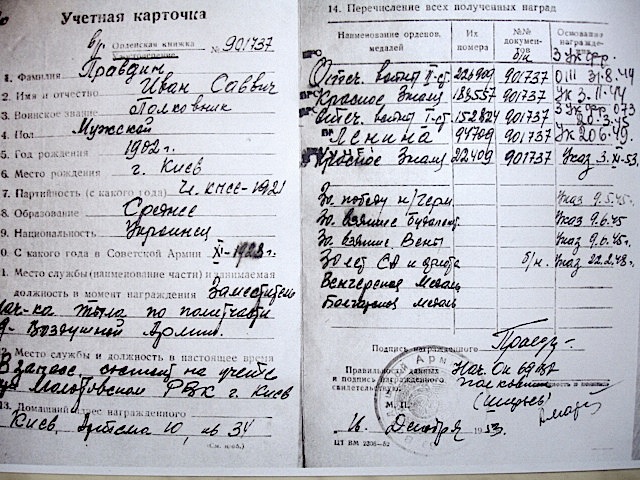 Учетная карточка
Вр. Орденская книжка №№ 901737
Удостоверение
1. Фамилия Правдин
2. Имя и отчество Иван Саввич
3. Воинское звание Полковник
4. Пол Мужской
5. Год рождения 1902 г.
6. Место рождения г. Киев
7. Партийность (с какого года) Чл. КПСС-1921
8. Образование Среднее
9. Национальность Украинец
0. С какого года в Советской Армии XI-1923г.
1. Место службы (наименование части) и занимаемая
должность в момент награждения Заместитель
нач-ка тыла по политчасти
Воздушной Армии.
12. Место службы и должность в настоящее время
В запасе, состоит на учете
Молотовском РВК г. Киев
13. Домашний адрес награжденного
Киев, Артема 10, кв 34
(См. н/об.)
14. Перечисление всех полученных наград
Наименование орденов, медалей
Их номера
№№ документов
Основание награждения
б/н
Отеч. войны II-ст 226909 901737 0111 31.8.44
Красное Знамя 183557 901737 Ук 3.11.44
Отеч. войны I-ст 152824 901737 073 20.3.45
Ленина 94709 901737 Ук 206.49
Красное Знамя 22409 901737 Указ 3.XI-53
За победу н/Герм. Указ 9.5.45г.
За взятие Будапешт Указ 9.6.45
За взятие Вены Указ 9.6.45г.
30 лет СА и флота б/н. Указ 22.2.48г.
Венгерская Медаль
Болгарская медаль
Подпись награжденного
Правильность данных
и подпись награжденного
свидетельствую:
Нач. ОК 69
М. П.
16 Декабря 1953.
ЦТ ВМ 2206—52